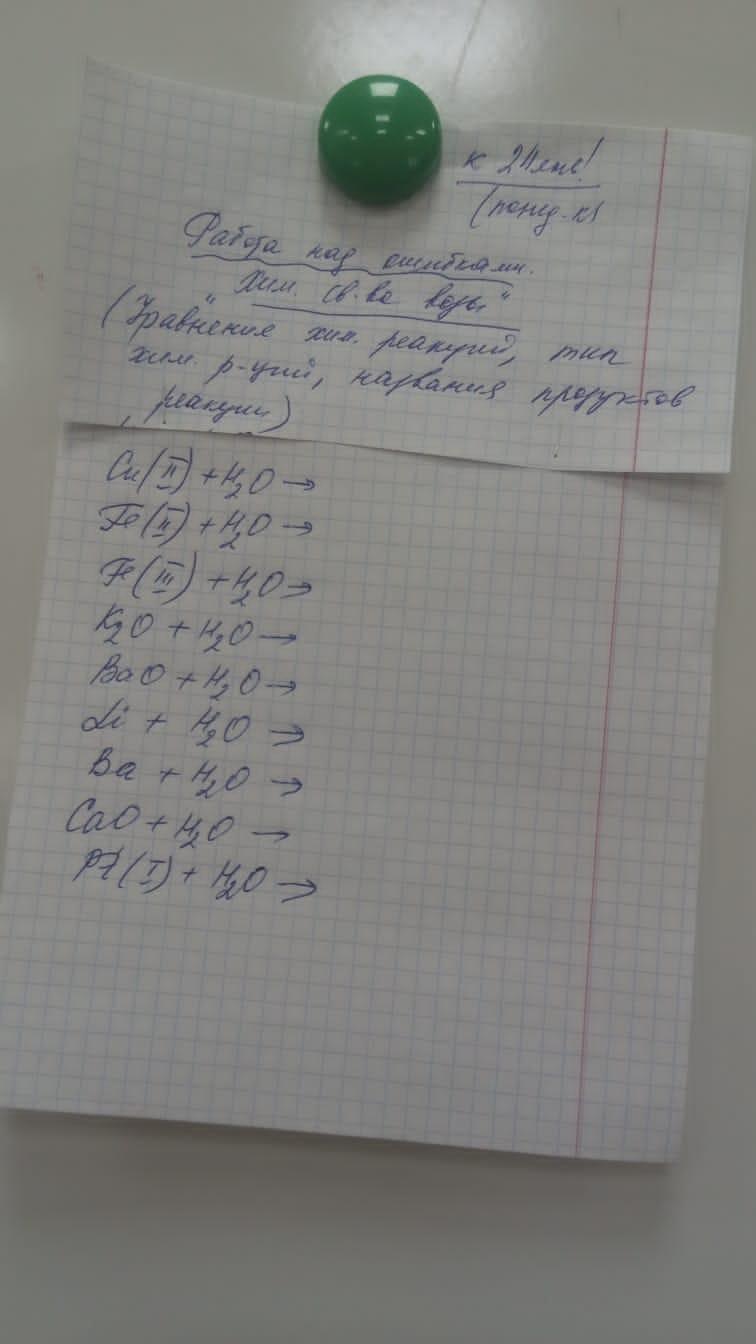 к 24 янв!
(понед-к)
Работа над ошибками.
"Хим. св-ва воды"
(Уравнения хим. реакций, тип
хим. р-ций, названия продуктов
реакции)
Cu(II) + H₂O →
Fe(II) + H₂O →
Fe(III) + H₂O →
K₂O + H₂O →
BaO + H₂O →
Li + H₂O →
Ba + H₂O →
CaO + H₂O →
(I) + H₂O →